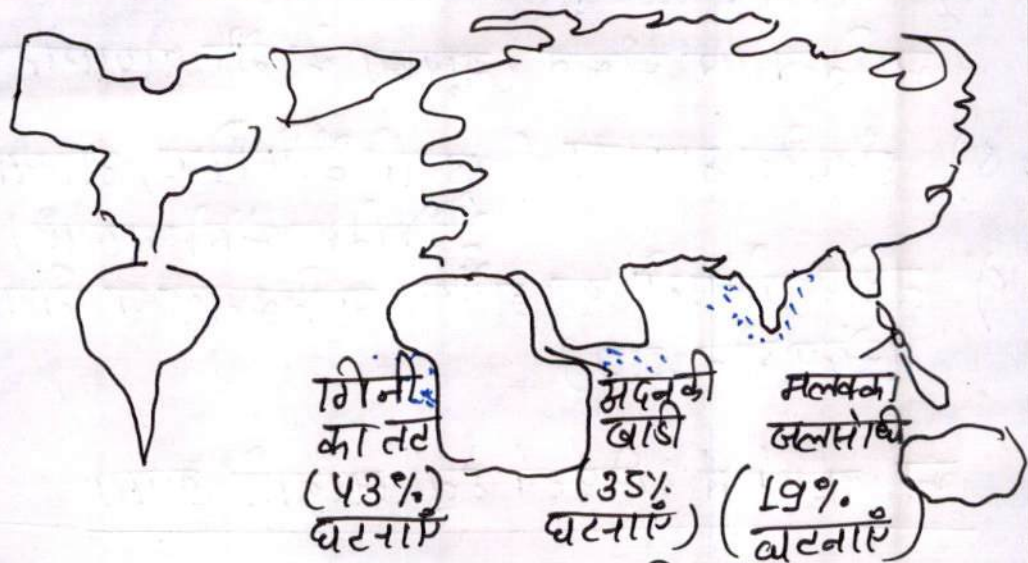 गिनी
का तट
(43%)
घटनाएँ
अदन की
खाड़ी
(35%
घटनाएँ)
मलक्का
जलसंधि
(19%.
घटनाएँ)